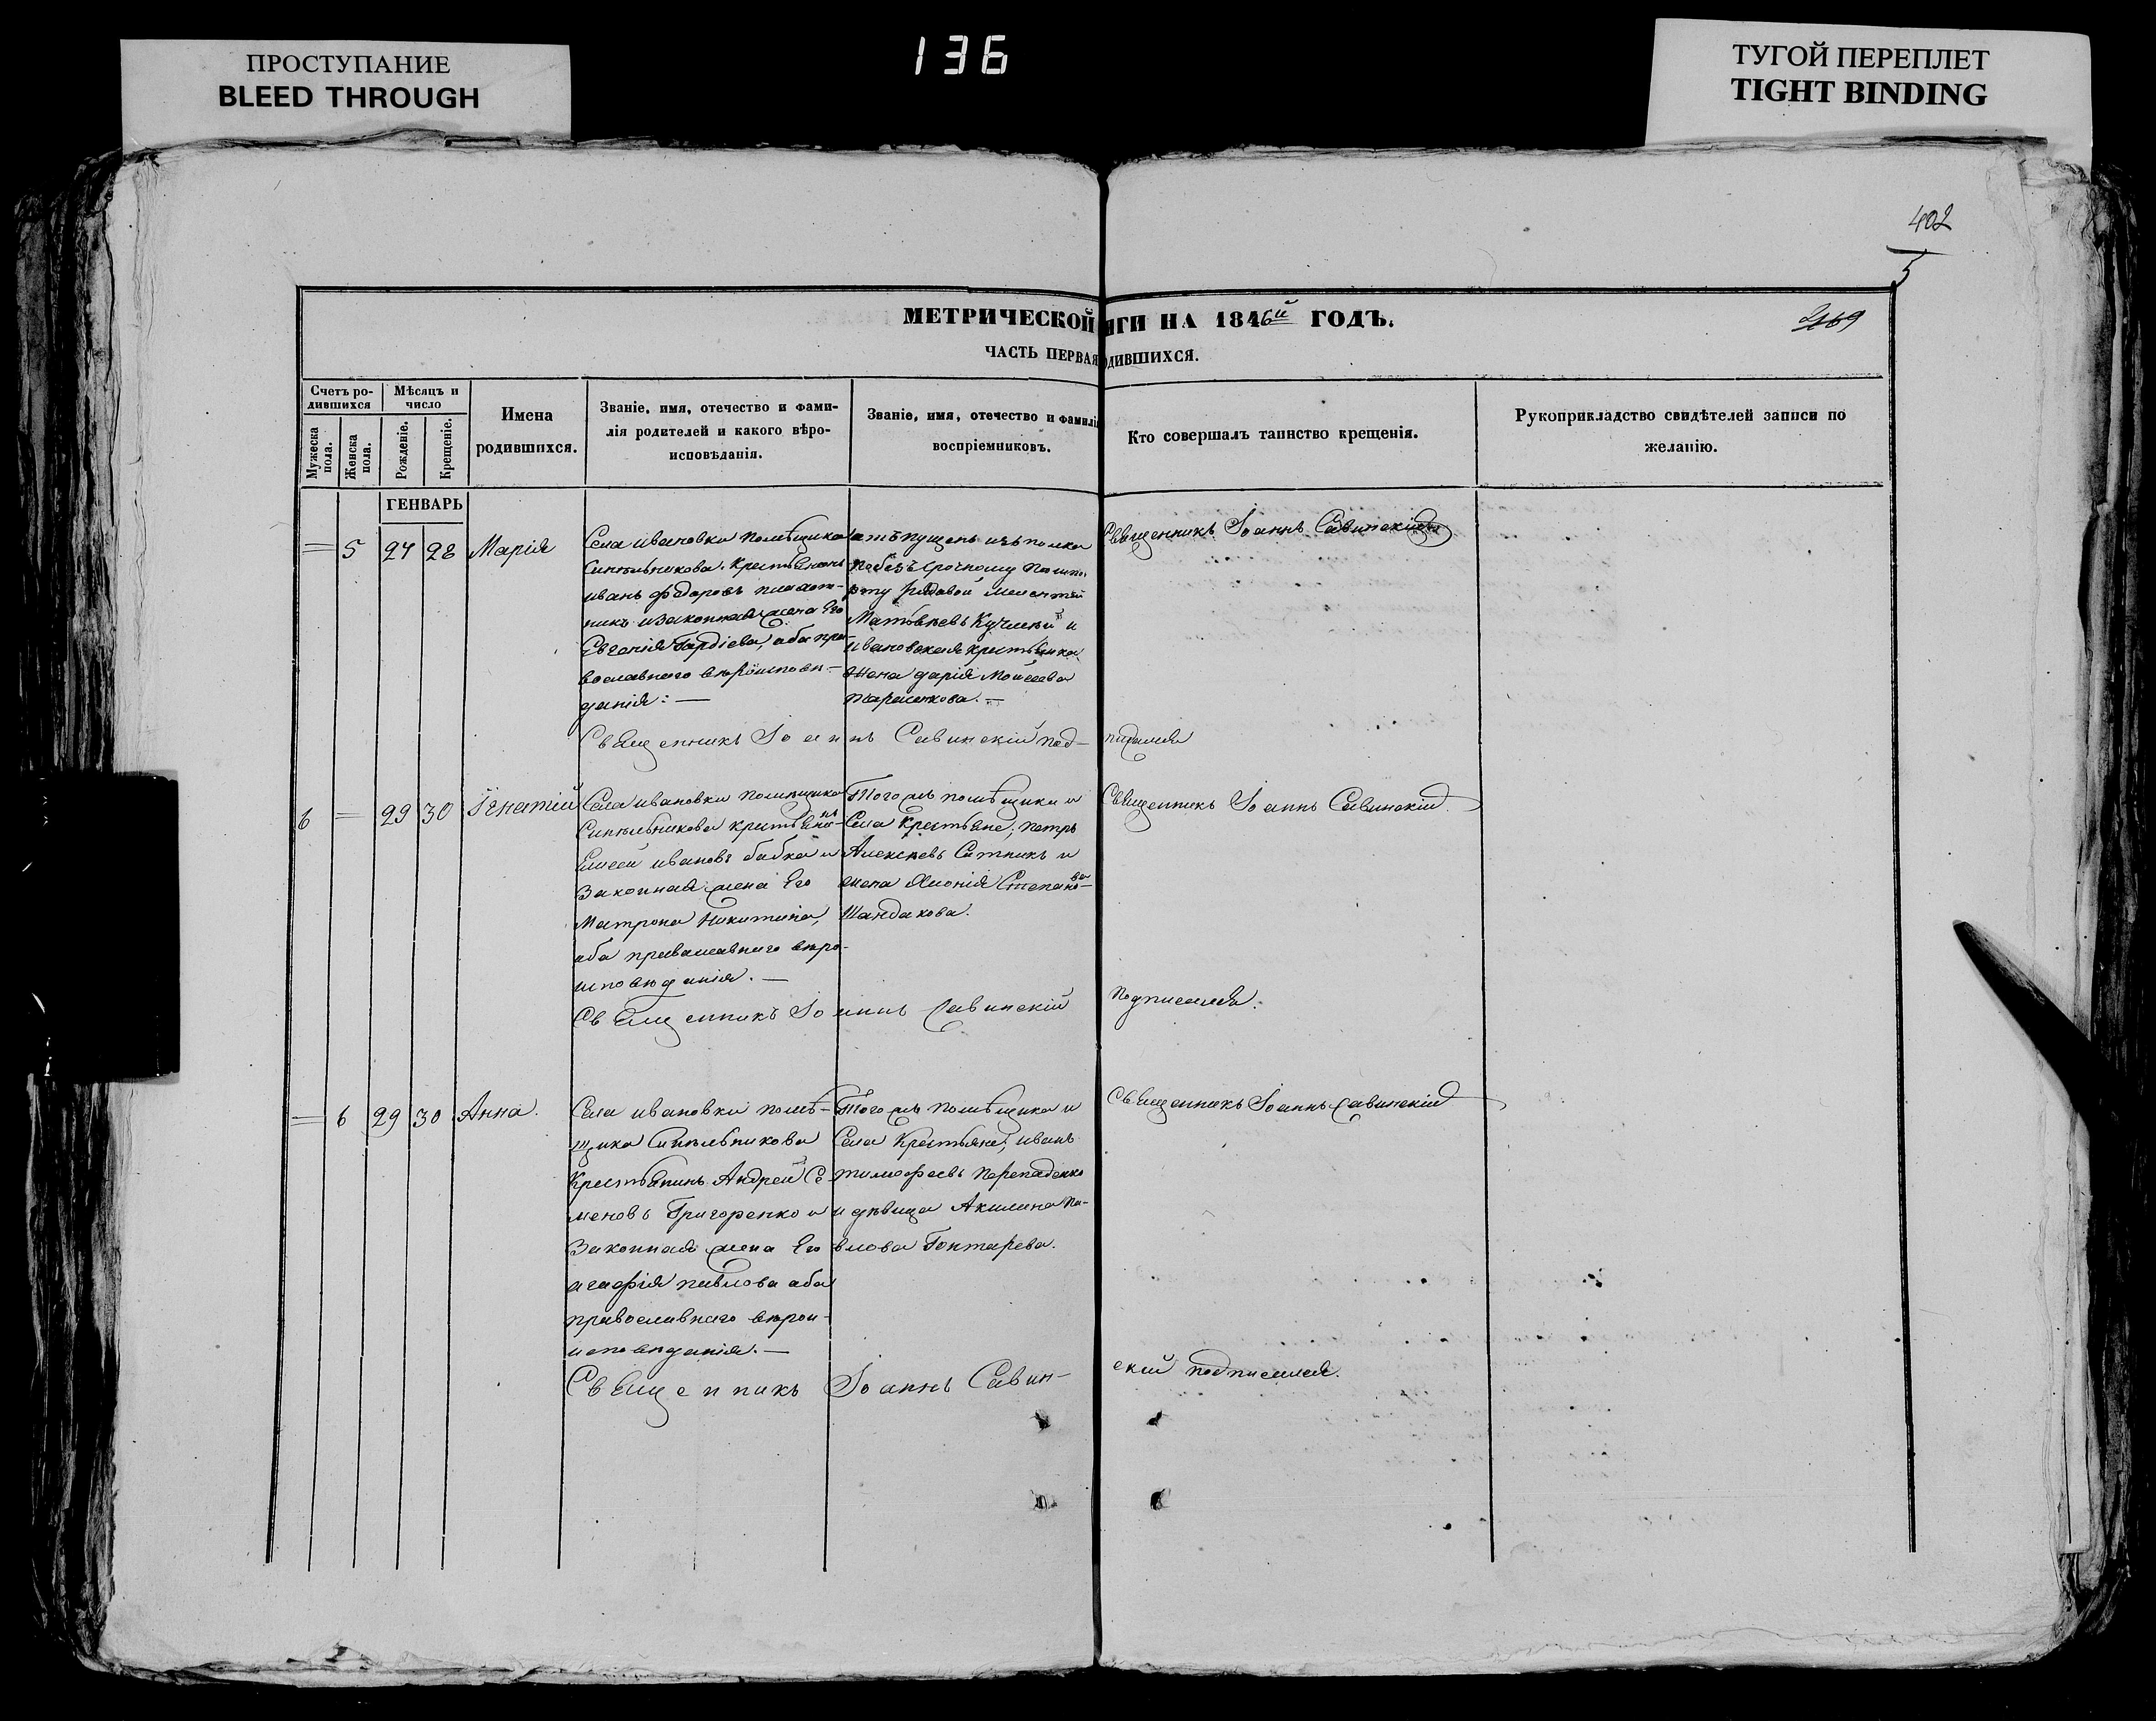 ПРОСТУПАНИЕ
BLEED THROUGH
136
ТУГОЙ ПЕРЕПЛЕТ
TIGHT BINDING
402
5
МЕТРИЧЕСКОЙ ИГИ НА 1846й ГОДЪ.
2169
ЧАСТЬ ПЕРВАЯ ОДИВШИХСЯ.
Счетъ ро-
дившихся
Мужеска пола.
Женска пола.
Мѣсяцъ и
число
Рожденіе.
Крещеніе.
Имена
родившихся.
Званіе, имя, отечество и фами-
лія родителей и какого вѣро-
исповѣданія.
Званіе, имя, отечество и фамилі
воспріемниковъ.
Кто совершалъ таинство крещенія.
Рукоприкладство свидѣтелей записи по
желанію.
ГЕНВАРЬ
= 5 27 28 Марія
Села ивановки помѣщика
Синѣльникова. Крестьянинъ
иванъ федоровъ плакот-
никъ и законная жена Его
Евгенія Гардіева, аба пра-
вославнаго вѣроисповѣ-
данія: —
атъпущенъ изъ полка
по безъсрочному
рядовой
Матвѣевъ и
ивановская крестьянка
жена дарія Моисеева
Священникъ Іоаннъ Савинскій
Священникъ Іоаннъ Савинскій под-
писался
6 = 29 30 Ігнатій
Села ивановки помѣщика
Синѣльникова крестьянинъ
Елисей ивановъ бабка и
Законная жена Его
Матрона Никитина,
аба православнаго вѣро-
исповѣданія. —
Тогожъ помѣщика и
Села Крестьяне; петръ
Алексѣевъ Ситникъ и
жена Степанова
Шандакова.
Священникъ Іоаннъ Савинскій
Священникъ Іоаннъ Савинскій
подписался.
= 6 29 30 Анна.
Села ивановки помѣ-
щика Синѣльникова
Крестьянинъ Андрей Се
меновъ Григоренко и
Законная жена Его
агафія павлова аба
православнаго вѣрои-
исповѣданія. —
Тогожъ помѣщика и
Села Крестьяне; иванъ
тимофеевъ Перепаденко
и дѣвица Акилина Па-
влова Гонтарева.
Священникъ Іоаннъ Савинскій
Священникъ Іоаннъ Савин-
скій подписался.